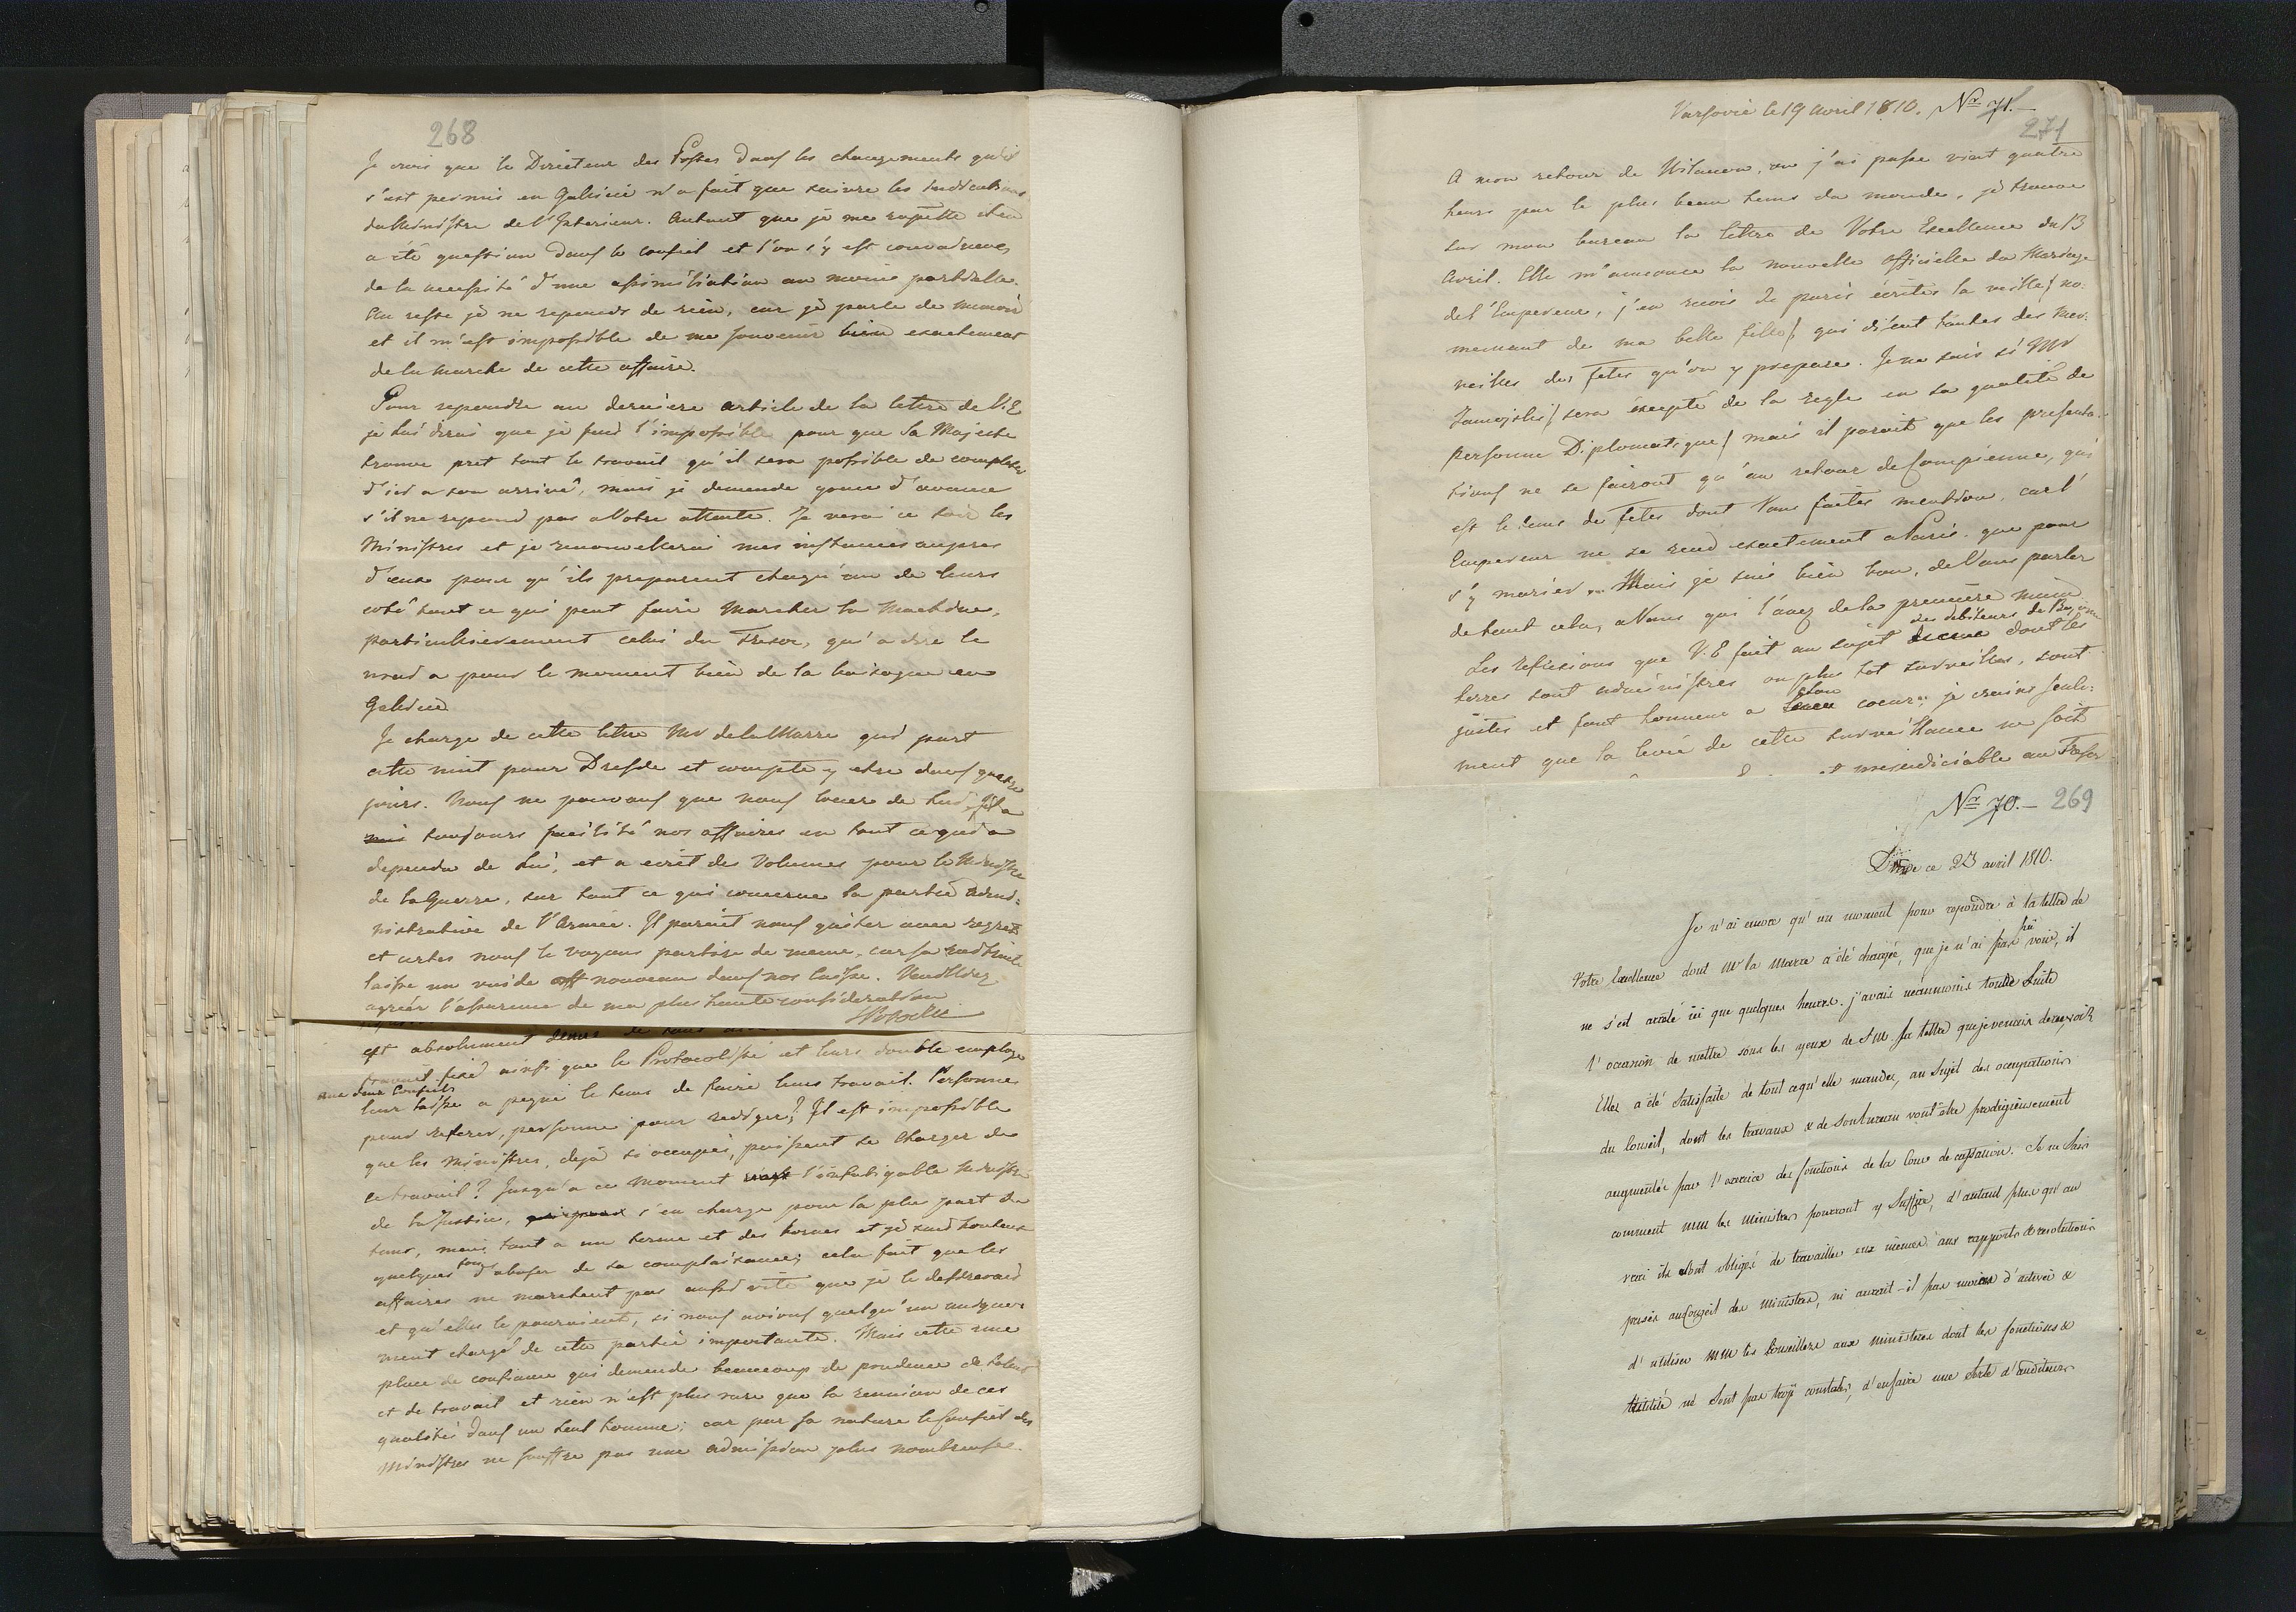 268
Je crois que le Directeur des Postes dans les changements qu'il
s'est permis en Galicie n'a fait que suivre les indications
du Ministre de l'Interieur. Autant que je me rapelle il en
a été question dans le conseil et l'on s'y est convaincu,
de la necessité d'une assimiliation au moins partielle.
Au reste je ne reponds de rien, car je parle de memoire
et il m'est impossible de me souvenir bien exactement
de la marche de cette affaire.
Pour repondre au derniere article de la lettre de V.E
je lui dirai que je fais l'impossible pour que Sa Majesté
trouve pret tout le travail qu'il sera possible de completer
d'ici a son arrivé, mais je demande grace d'avance
s'il ne repond pas a Votre attente. Je verai ce soir les
Ministres et je renouvellerai mes instances aupres
d'eux pour qu'ils preparent chaqu'un de leurs
coté tout ce qui peut faire marcher la Machine,
particulierement celui du Tresor, qui a dire le
vrai a pour le moment bien de la besogne en
Galicie
Je charge de cette lettre Mr de la Marre qui part
cette nuit pour Dresde et compte y etre dans quatre
jours. Nous ne pouvons que nous louer de lui, Il a
toujours facilité nos affaires en tout ce qui a
dependu de lui, et a ecrit des Volumes pour le Ministre
de la Guerre, sur tout ce qui concerne la partie admi-
nistrative de l'Armée. Il parait nous quitter avec regret
et certes nous le voyons partir de meme, car sa
laisse un vuide nouveau dans nos caisse. Veuillez
agreér l'assurance de ma plus haute consideration
est absolument
fixé ainsi que le Protocoliste et leurs double employe
aux deux Conseils
leur laisse a peine le tems de faire leur travail. Personne
pour referer, personne pour rediger? Il est impossible
que les Ministres, dejà si occupés, puissent se charger de
ce travail? Jusqu'a ce moment l'infatigable Ministre
de la Justice, s'en charge pour la plus part du
tems, mais tout a un terme et des bornes et je suis honteux
quelques fois d'abuser de sa complaisance; cela fait que les
affaires ne marchent pas aussi vite que je le desirerais
et qu'elles le pouraient, si nous avions quelqu'un unique-
ment chargé de cette partie importante. Mais cette une
place de confiance qui demande beaucoup de prudence de talent
et de travail et rien n'est plus rare que la reunion de ces
qualités dans un seul homme; car par sa nature le Conseil des
Ministres ne souffre pas une admission plus nombreuse.
Varsovie le 19 Avril 1810. Nro 71.
271
A mon retour de Wilanow, ou j'ai passe vint quatre
heurs par le plus beau tems du monde, je trouve
sur mon bureau la lettre de Votre Excellence du 13
Avril. Elle m'annonce la nouvelle officielle du Mariage
de l'Empereur, j'en recois de paris écrites la veille/ no-
mement de ma belle fille/, qui disent toutes des mer-
veilles des fetes qu'on y prepare. Je ne sais si Mr
Zamojski/ sera éxcepté de la regle en sa qualité de
personne Diplomatique/ mais il parait que les presenta-
tions ne se fairont qu'au retour de Compienne, qui
est le tems de fetes dont Vous faites mention, car l'
Empereur ne se rend exactement a Paris que pour
s'y marier. Mais je suis bien bon, de Vous parler
de tout cela, a Vous qui l'avez de la premiere main
Les reflexions que V.E fait au sujet des debiteurs de Bayonne dont les
terres sont administrés ou plus tot surveillés, sont
justes et font honneur a Son coeur; je crains seule-
ment que la levée de cette surveillance ne soit
prejudiciable au Tresor
Nro 70. 269
Dresde ce 23 avril 1810.
Je n'ai encore qu'un moment pour repondre à la lettre de
Votre Excellence dont Mr la Marre a été chargée, que je n'ai pas pû voir, il
ne s'est arreté ici que quelques heures. j'avais neanmoins toute Suite
l'occasion de mettre sous les yeux de S M. la lettre que je venais de recevoir
Elle a été Satisfaite de tout ce qu'elle mande, au Sujet des occupations
du Conseil, dont les travaux & de son bureau vont être prodigieusement
augmentée par l'exercice des fonctions de la Cour de cassation. Je ne Sais
comment MM les Ministres pourront y Suffire, d'autant plus qu'au
vrai ils Sont obligés de travailler eux memes aux rapports & resolutions
prises au Conseil des Ministres, ni aurait-il pas moien d'activer &
d'utiliser MM les Conseillers aux ministeres dont les fonctions &
l'utilité ne Sont pas trop constatés, d'en faire une Sorte d'auditeurs